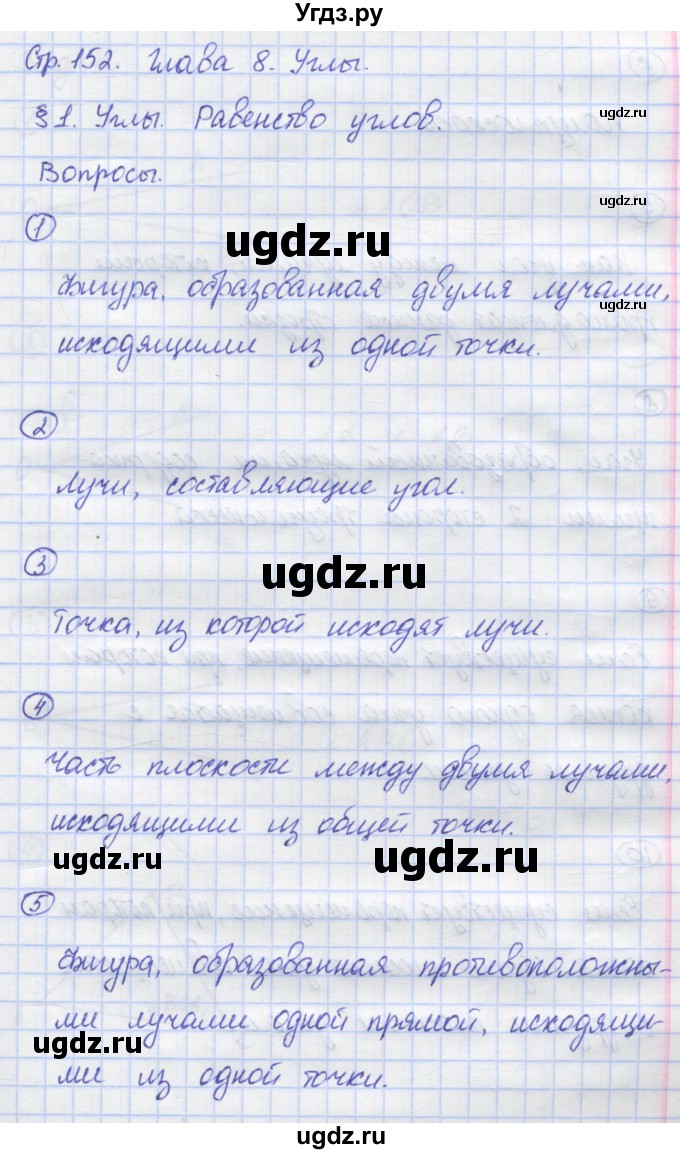 Угдз.ру
Стр. 152. Глава 8. Углы.
ugdz.ru
§1. Углы. Равенство углов.
Вопросы.
ugdz.ru
1
ugdz.ru
Фигура, образованная двумя лучами,
ugdz.ru
исходящими из одной точки.
2
Лучи, составляющие угол.
3
ugdz.ru
Точка, из которой исходят лучи.
4
Часть плоскости между двумя лучами,
исходящими из общей точки.
ugdz.ru
ugdz.ru
5
Фигура, образованная противоположны-
ми лучами одной прямой, исходящи-
ugdz.ru
ми из одной точки.
ugdz.ru